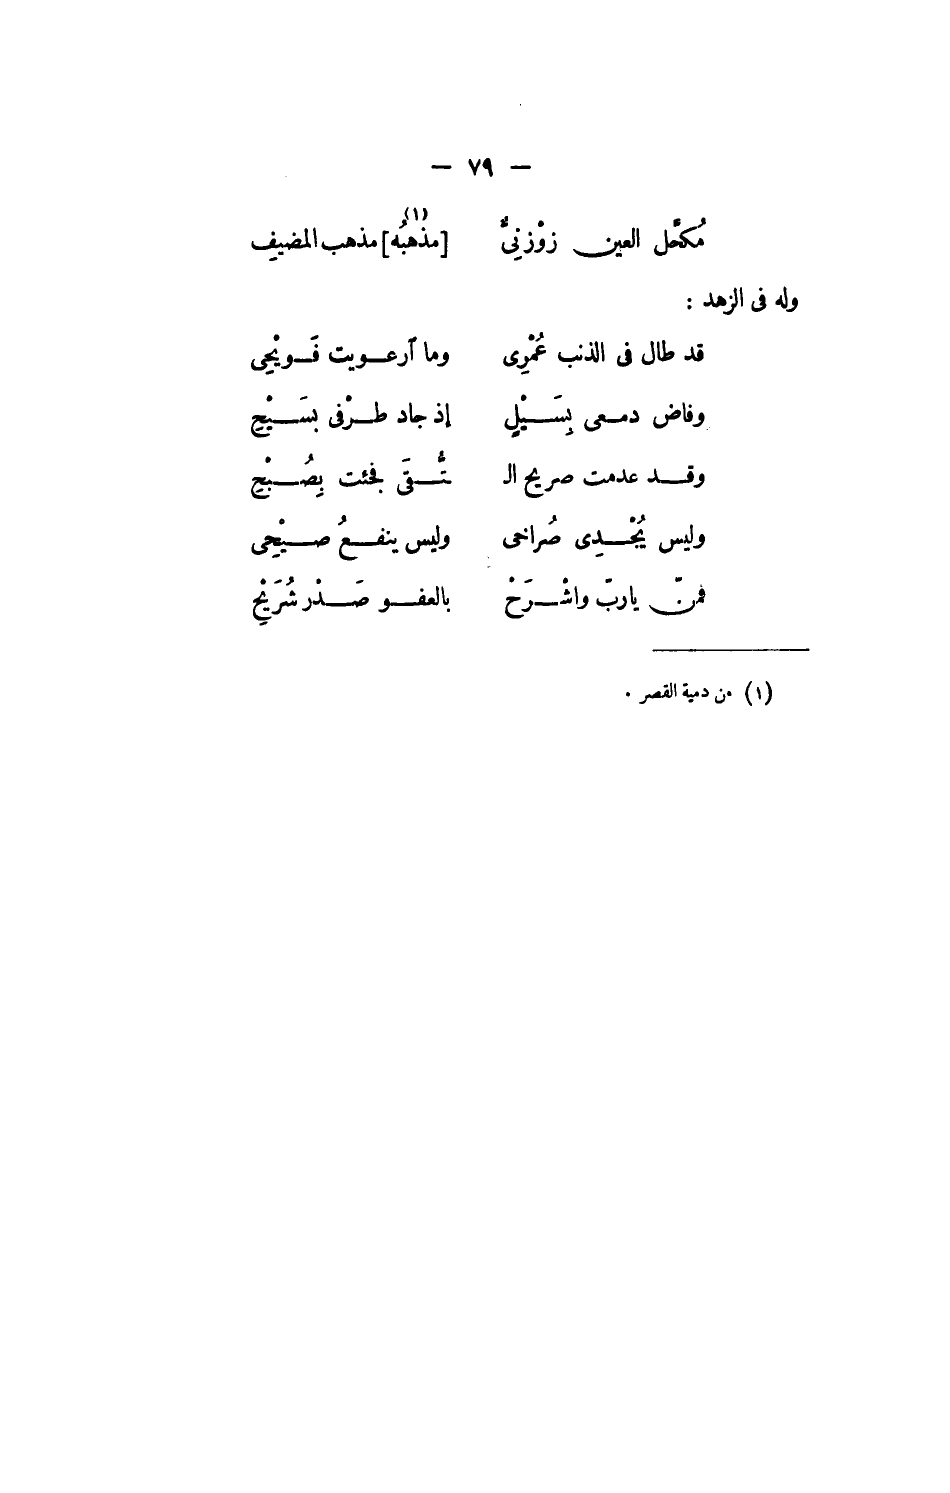 — ٧٩ —
مُكحَّل العين زوْزنِيٌّ [مذهبُه](١) مذهب المضيفِ
وله فى الزهد :
قد طال فى الذنب عُمْرِى وما آرعويت فَويْحِى
وفاض دمعى بِسَيْلٍ إذ جاد طرْفى بسَيْحِ
وقد عدمت صريح الـ ـتُّقَى فجئت بِصُبْحِ
وليس يُجْدِى صُراخى وليس ينفعُ صيْحِى
فمنّ ياربّ واشْرَحْ بالعفو صَدْر شُرَيْحِ
(١) من دمية القصر .